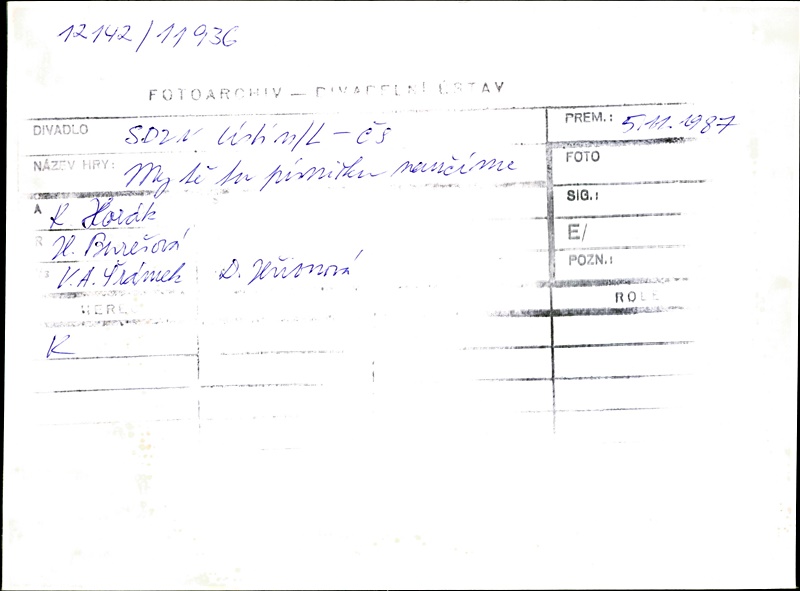 12142/11936
FOTOARCHIV — DIVADELNÍ ÚSTAV
DIVADLO SDZN Ústí n/L - čs
PREM.: 5.11.1987
NÁZEV HRY: My tě tu písničku naučíme
FOTO
A K. Horák
SIG.:
R H. Burešová
E/
V. A. Šrámek D. Hřibnová
POZN.:
HERE
ROLE
K